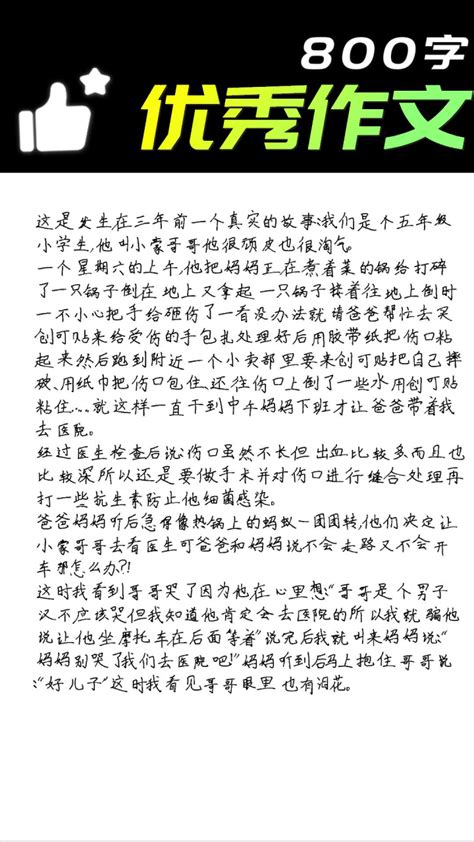 800字
优秀作文
这是发生在三年前一个真实的故事:我们是个五年级
小学生,他叫小蒙哥哥他很顽皮也很淘气。
一个星期六的上午,他把妈妈正在煮着菜的锅给打碎
了一只锅子倒在地上又拿起一只锅子接着往地上倒时
一不小心把手给砸伤了一看没办法就请爸爸帮忙去买
创可贴来给受伤的手包扎处理好后用胶带纸把伤口粘
起来然后跑到附近一个小卖部里要来创可贴把自己摔
破,用纸巾把伤口包住,还往伤口上倒了一些水用创可贴
粘住....就这样一直干到中午妈妈下班才让爸爸带着我
去医院。
经过医生检查后说:伤口虽然不长但出血比较多而且也
比较深所以还是要做手术并对伤口进行缝合处理再
打一些抗生素防止他细菌感染。
爸爸妈妈听后急得像热锅上的蚂蚁一团团转,他们决定让
小蒙哥哥去看医生可爸爸和妈妈说不会走路又不会开
车想怎么办?!
这时我看到哥哥哭了因为他在心里想:“哥哥是个男子
汉不应该哭但我知道他肯定会去医院的所以我就骗他
说让他坐摩托车在后面等着”说完后我就叫来妈妈说:“
妈妈别哭了我们去医院吧!”妈妈听到后马上抱住哥哥说
:“好儿子”这时我看见哥哥眼里也有泪花。